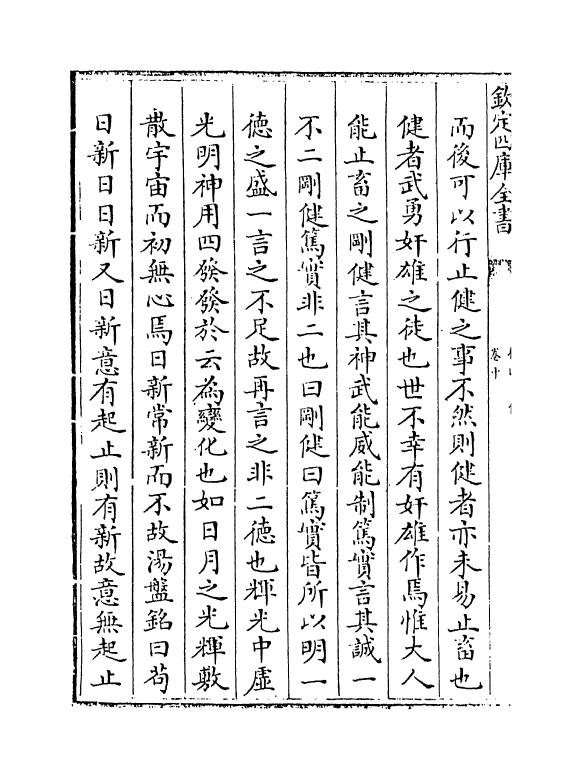 欽定四庫全書
卷十
而後可以行止健之事不然則健者亦未易止畜也
健者武勇奸雄之徒也世不幸有奸雄作焉惟大人
能止畜之剛健言其神武能威能制篤實言其誠一
不二剛健篤實非二也曰剛健曰篤實皆所以明一
徳之盛一言之不足故再言之非二徳也輝光中虛
光明神用四發發於云為變化也如日月之光輝敷
散宇宙而初無心焉日新常新而不故湯盤銘曰苟
日新日日新又日新意有起止則有新故意無起止